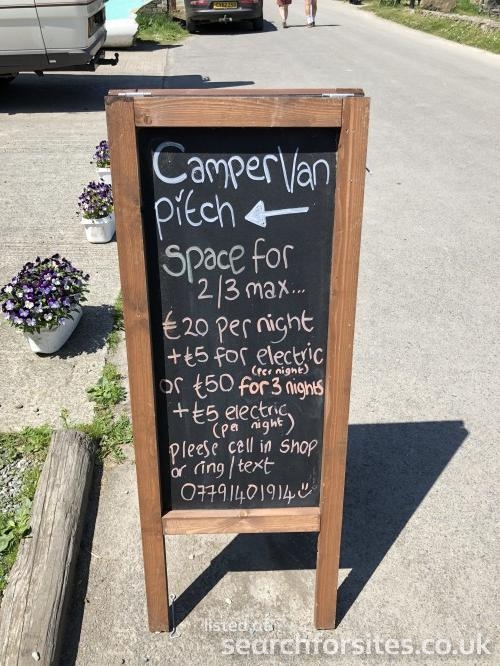 CamperVan
pitch
Space for
2/3 max...
£20 per night
+£5 for electric
(per night)
or £50 for 3 nights
+£5 electric
(per night)
pleese call in shop
or ring/text
07791401914
listed at
searchforsites.co.uk